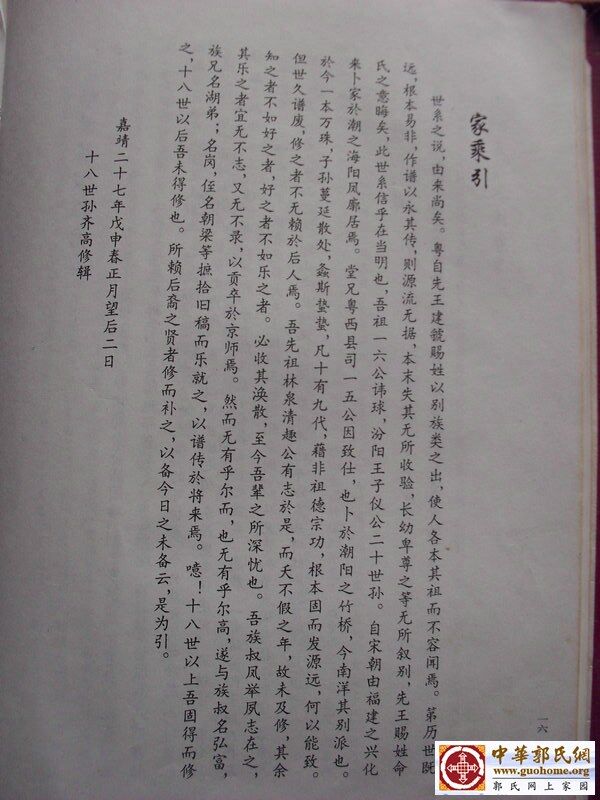 家乘引
世系之说，由来尚矣。粤自先王建虢赐姓以别族类之出，使人各本其祖而不容闻焉。第历世既
远，根本易非，作谱以永其传，则源流无据，本末失其无所收验，长幼卑尊之等无所叙别，先王赐姓命
氏之意晦矣，此世系信乎在当明也，吾祖一六公讳球，汾阳王子仪公二十世孙。自宋朝由福建之兴化
来卜家於潮之海阳凤廓居焉。堂兄粤西县司一五公因致仕，也卜於潮阳之竹桥，今南洋其别派也。
於今一本万珠，子孙蔓延散处，螽斯蛰蛰，凡十有九代，藉非祖德宗功，根本固而发源远，何以能致。
但世久谱废，修之者不无赖於后人焉。吾先祖林泉清趣公有志於是，而天不假之年，故未及修，其余
知之者不如好之者，好之者不如乐之者。必收其涣散，至今吾辈之所深忧也。吾族叔凤举夙志在之，
其乐之者宜无不志，又无不录，以贡卒於京师焉。然而无有乎尔而，也无有乎尔高，遂与族叔名弘富，
族兄名湖弟；名岗，侄名朝梁等摭拾旧稿而乐就之，以谱传於将来焉。噫！十八世以上吾固得而修
之，十八世以后吾未得修也。所赖后裔之贤者修而补之，以备今日之未备云，是为引。
嘉靖二十七年戊申春正月望后二日
十八世孙齐高修辑
一六
中華郭氏網
www.guohome.org
郭氏网上家园